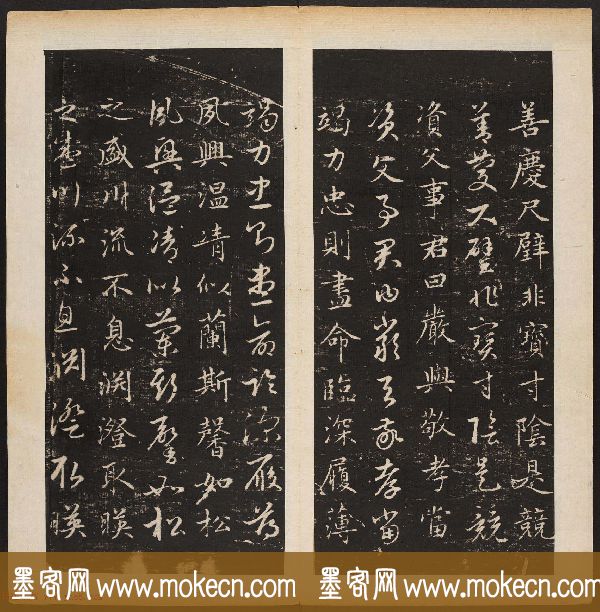 善慶尺璧非寶寸陰是競
善慶尺璧非寶寸陰是競
資父事君曰嚴與敬孝當
資父事君曰嚴與敬孝當
竭力忠則盡命臨深履薄
竭力忠則盡命臨深履薄
夙興温清似蘭斯馨如松
夙興温清似蘭斯馨如松
之盛川流不息渕澄取暎
之盛川流不息渕澄取暎
墨客网 www.mokecn.com 墨客网 www.mokecn.com